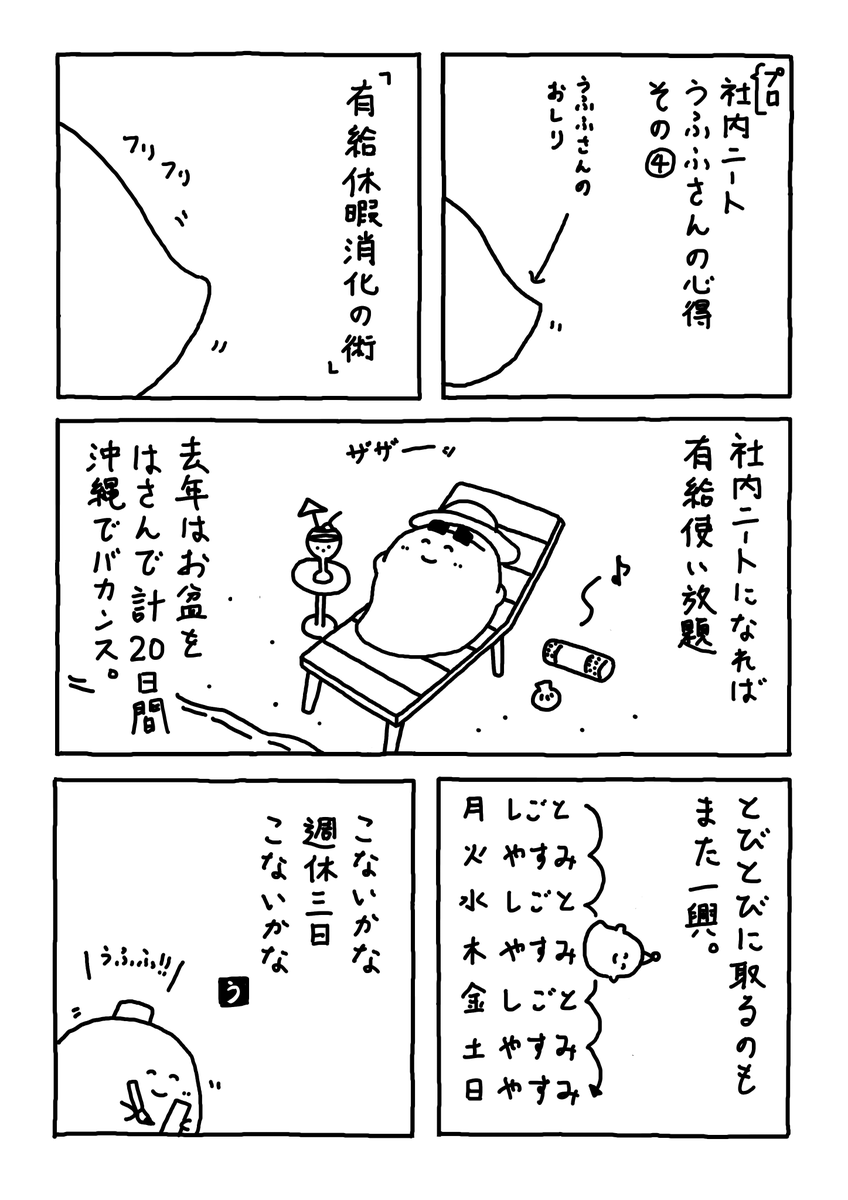 プロ
社内ニート
うふふさんの心得
その④
うふふさんの
おしり
「有給休暇消化の術」
フリ
フリ
社内ニートになれば
有給使い放題
ザザーッ
♪
去年はお盆を
はさんで計20日間
沖縄でバカンス。
とびとびに取るのも
また一興。
月 しごと
火 やすみ
水 しごと
木 やすみ
金 しごと
土 やすみ
日 やすみ
こないかな
週休三日
こないかな
う
うふふ!!